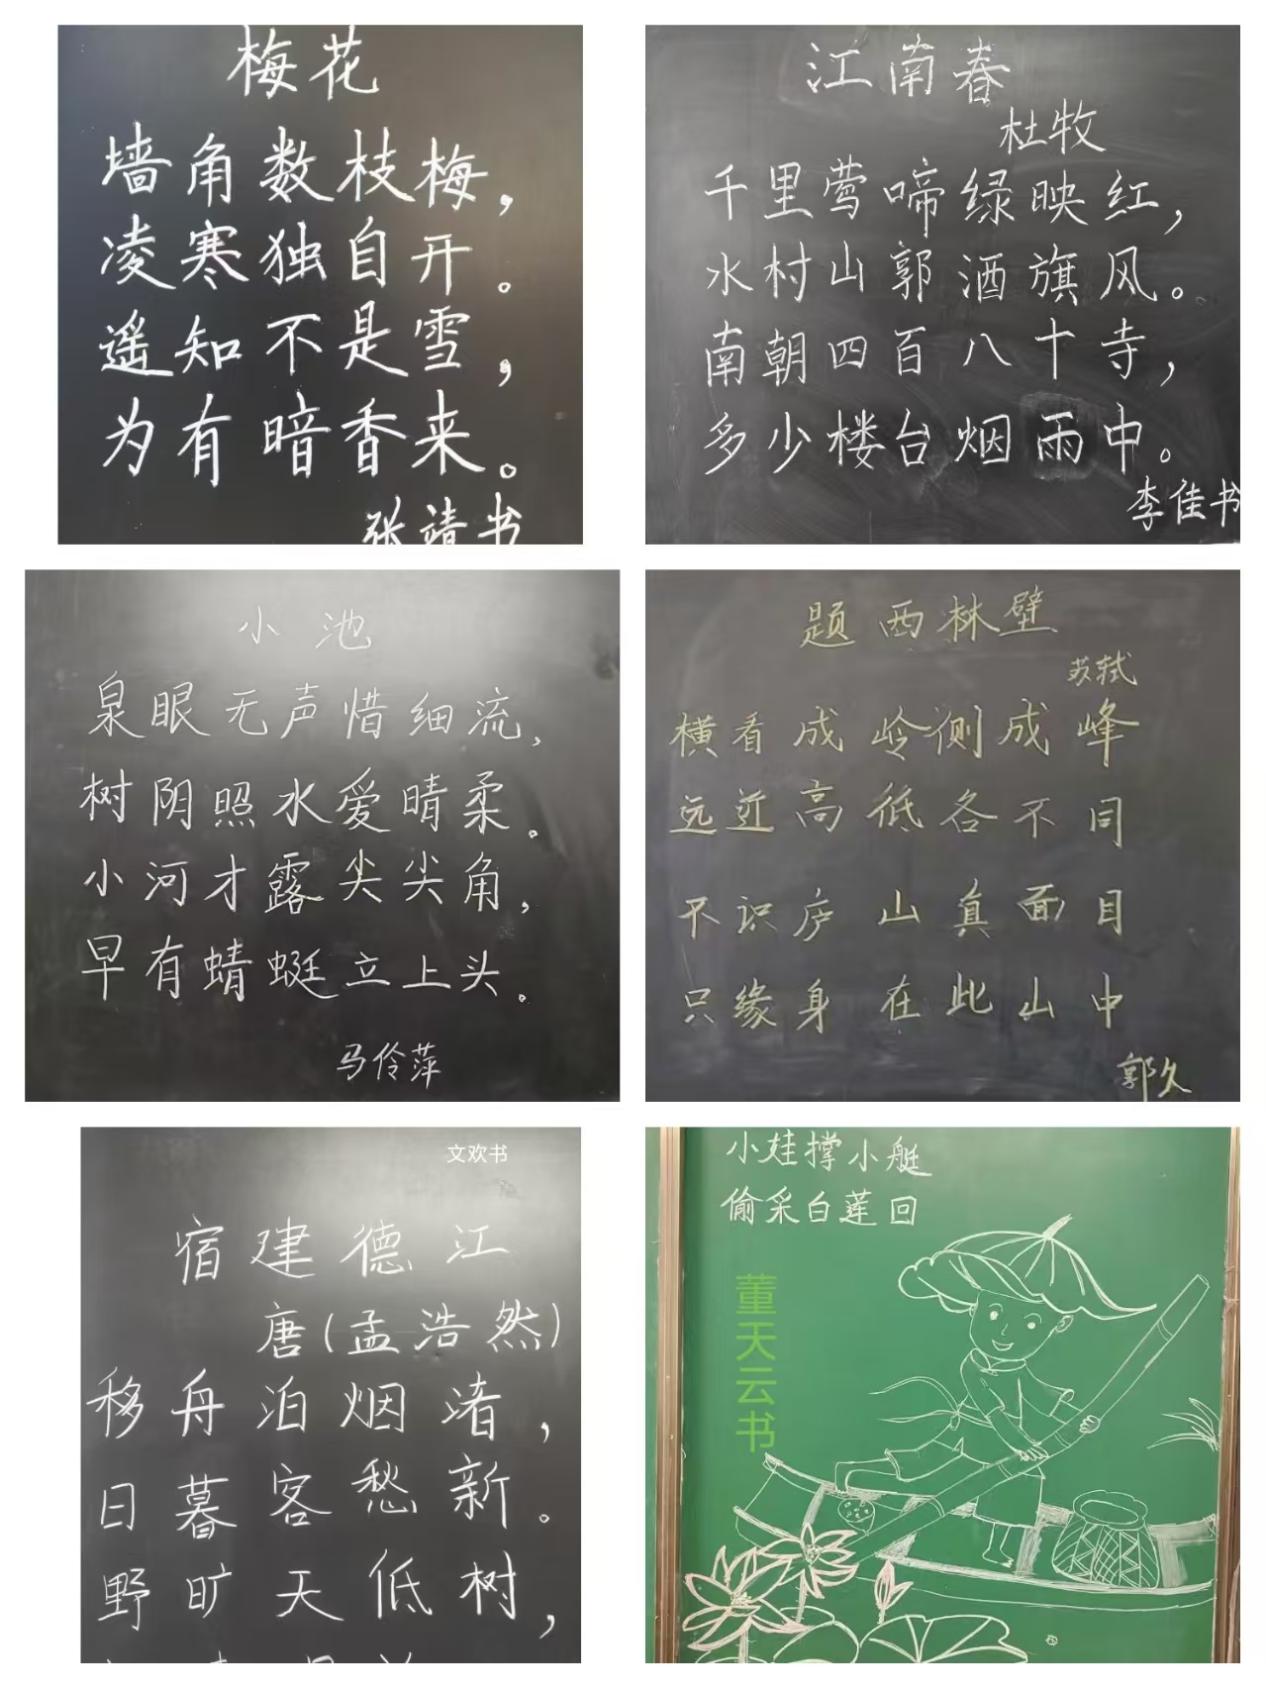 梅花
墙角数枝梅，
凌寒独自开。
遥知不是雪，
为有暗香来。
张靖书
江南春
杜牧
千里莺啼绿映红，
水村山郭酒旗风。
南朝四百八十寺，
多少楼台烟雨中。
李佳书
小池
泉眼无声惜细流，
树阴照水爱晴柔。
小河才露尖尖角，
早有蜻蜓立上头。
马伶萍
题西林壁
苏轼
横看成岭侧成峰
远近高低各不同
不识庐山真面目
只缘身在此山中
郭久
文欢书
宿建德江
唐(孟浩然)
移舟泊烟渚，
日暮客愁新。
野旷天低树，
小娃撑小艇
偷采白莲回
董天云书